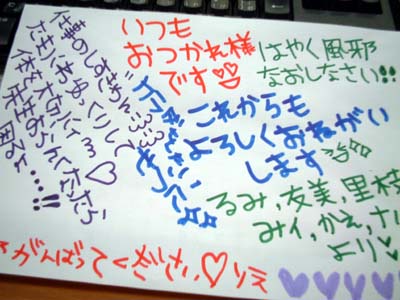 いつも
おつかれ様
です
はやく風邪
なおしなさい!!
これからも
よろしくおねがい
します
るみ,友美,里枝
みイ,かえ,ナ
より
仕事のしすぎ
たまにはゆっくりして
体を大切に
先生おらんくなったら
困るよ…!!
がんばってください♡りえ